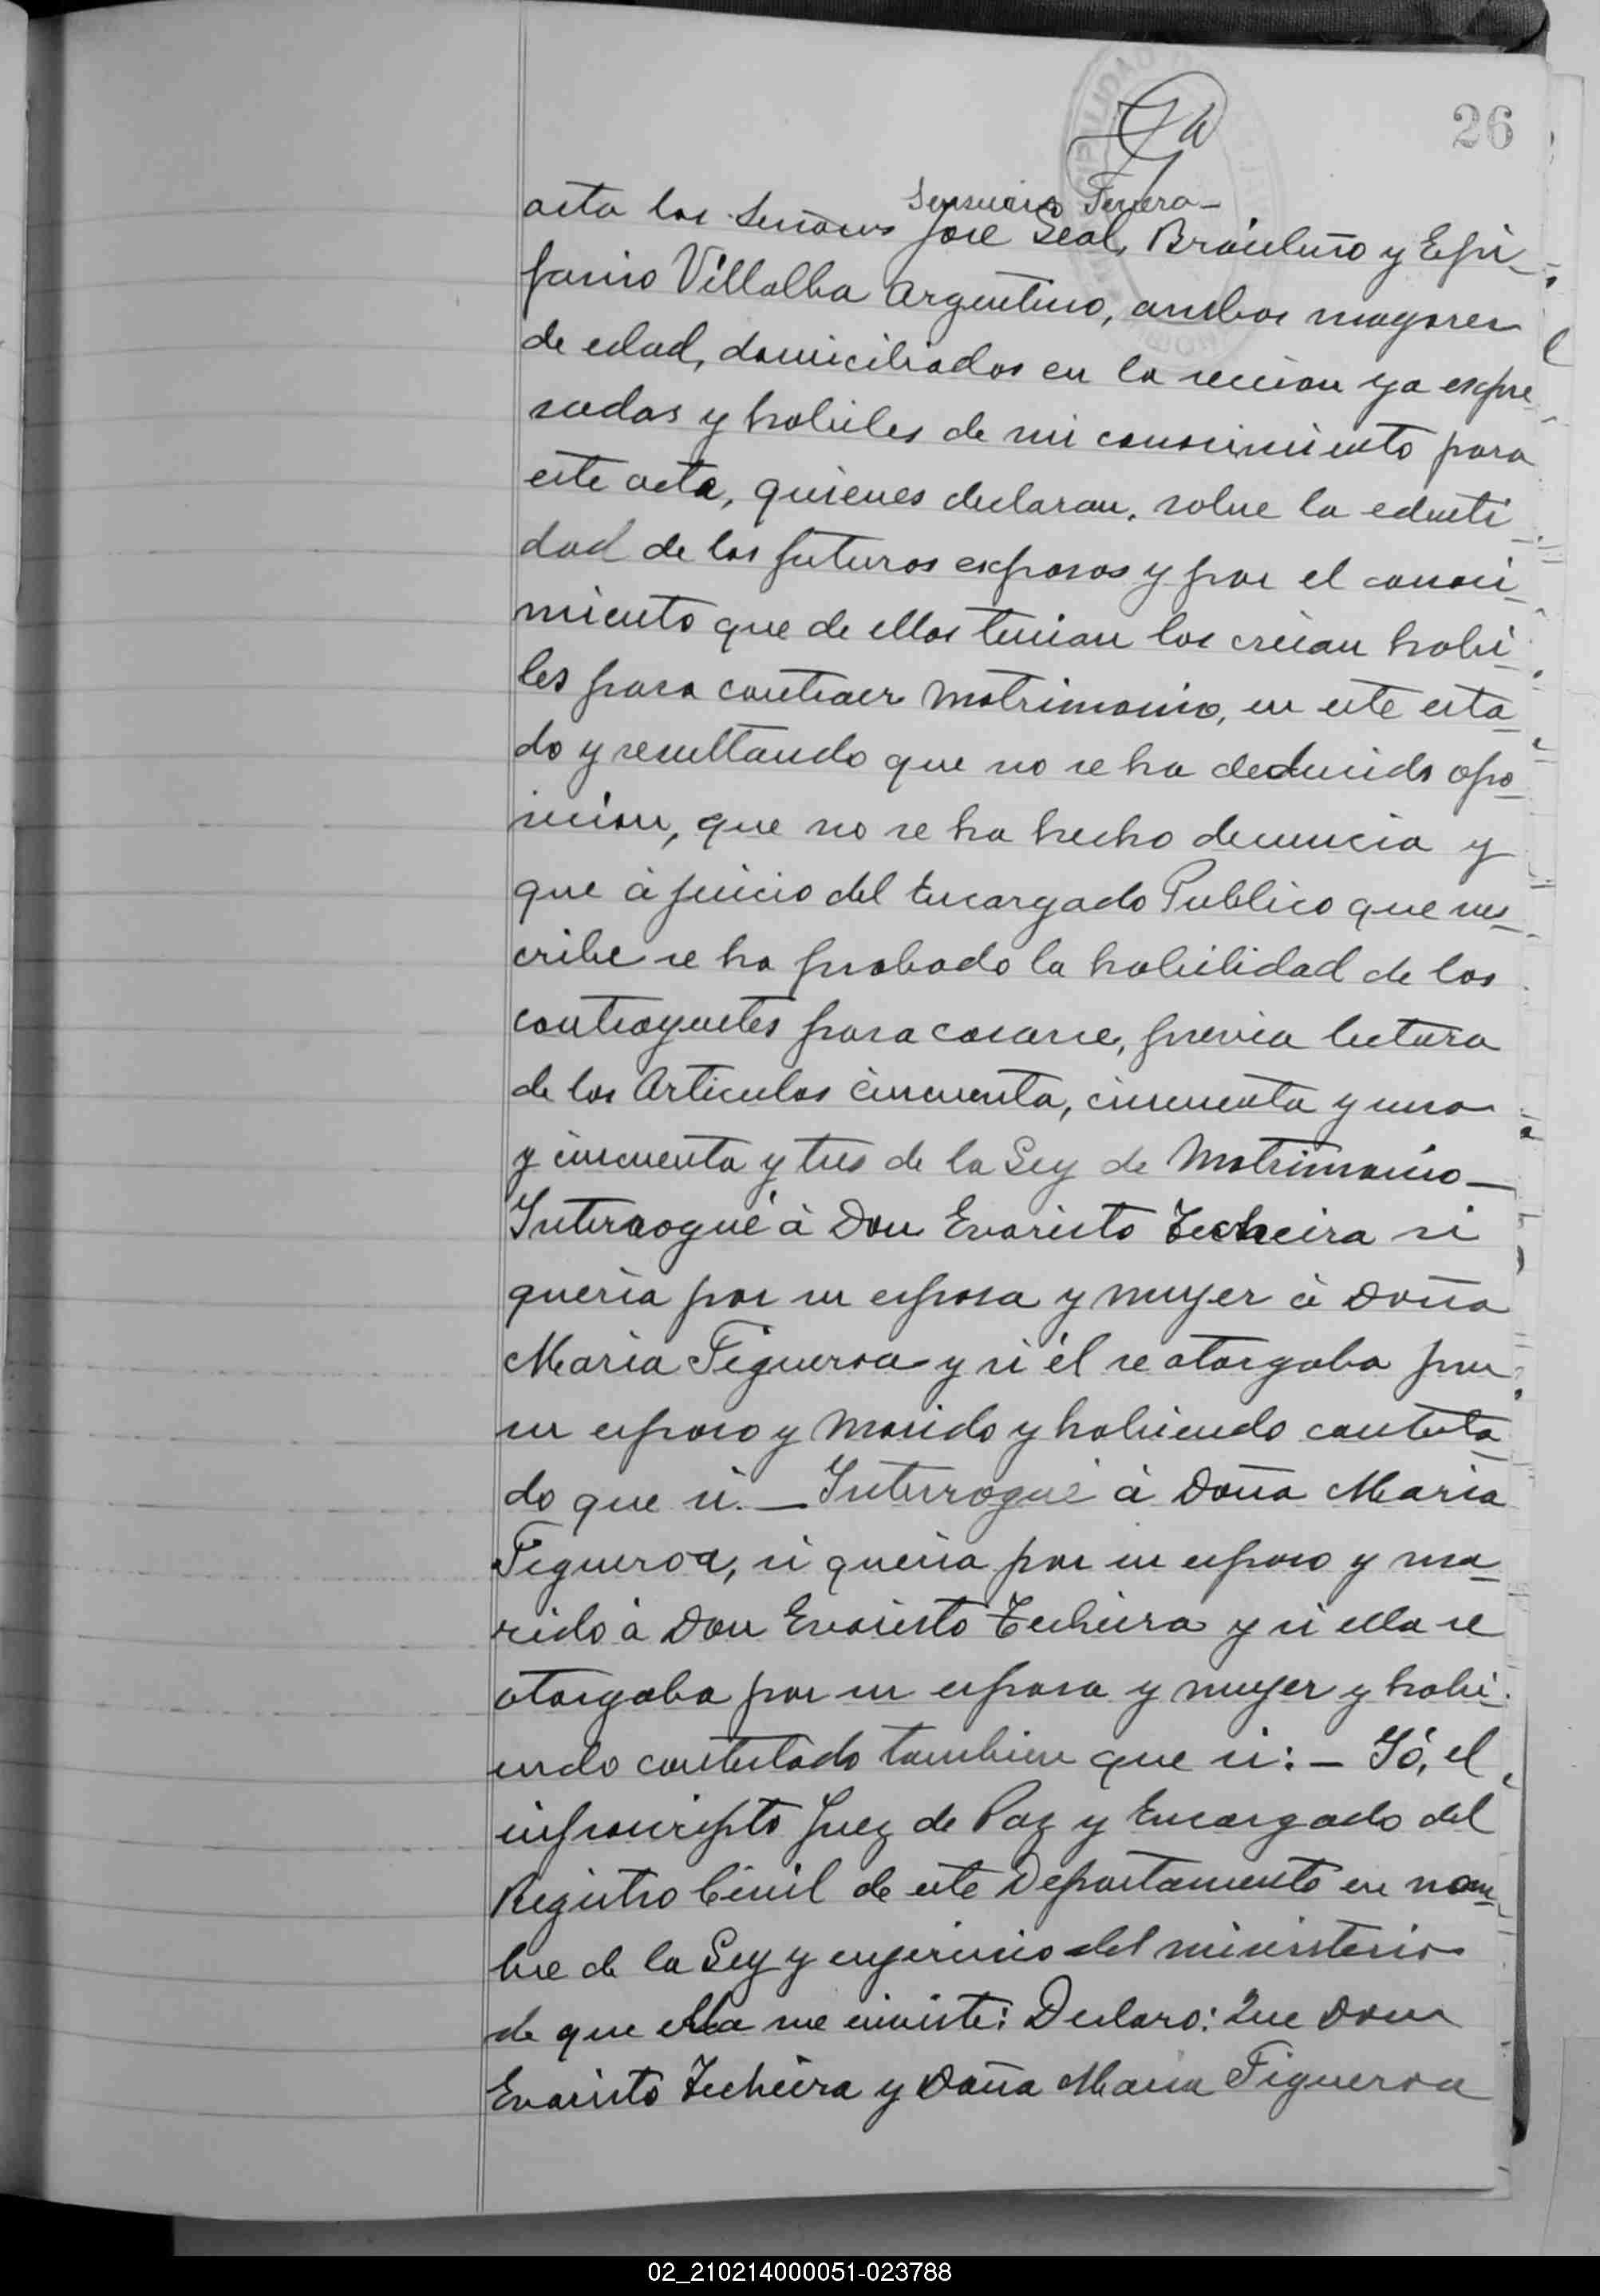 26
acta los Señores José Leal, Brasileño y Epi-
fanio Villalba Argentino, ambos mayores
de edad, domiciliados en la seccion ya expre-
sadas y habiles de mi conocimiento para
este acta, quienes declaran, sobre la edenti-
dad de los futuros esposos y por el conoci-
miento que de ellos tenian los creian habi-
les para contraer Matrimonio, en este esta-
do y resultando que no se ha deducido opo-
sicion, que no se ha hecho denuncia y
que á juicio del Encargado Publico que sus-
cribe se ha probado la habilidad de los
contrayentes para casarse, previa lectura
de los Articulos cincuenta, cincuenta y uno
y cincuenta y tres de la Ley de Matrimonio_
Interrogué á Don Evaristo Techeira si
queria por su esposa y muger á Doña
Maria Figueroa y si él se otorgaba por
su esposo y Marido y habiendo contesta-
do que si._ Interrogué á Doña Maria
Figueroa, si queria por su esposo y ma-
rido á Don Evaristo Techeira y si ella se
otorgaba por su esposa y muger y habi-
endo contestado tambien que si:_ Yó, el
infrascripto Juez de Paz y Encargado del
Registro Civil de este Departamento en nom-
bre de la Ley y engercicio del ministerio
de que ella me inviste: Declaro: Que Don
Evaristo Techeira y Doña Maria Figueroa
02_210214000051-023788